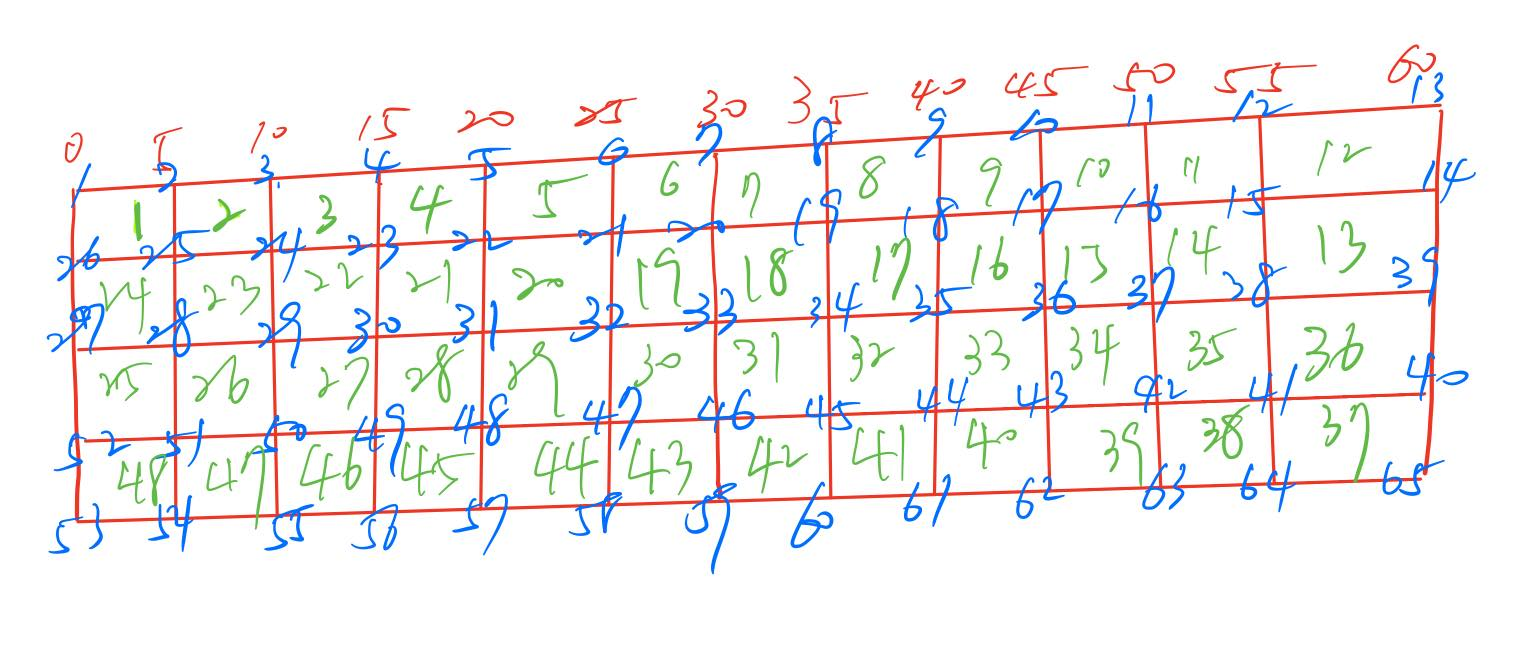 0 5 10 15 20 25 30 35 40 45 50 55 60
1 2 3 4 5 6 7 8 9 10 11 12 13
1 2 3 4 5 6 7 8 9 10 11 12
26 25 24 23 22 21 20 19 18 17 16 15 14
24 23 22 21 20 19 18 17 16 15 14 13
27 28 29 30 31 32 33 34 35 36 37 38 39
25 26 27 28 29 30 31 32 33 34 35 36
52 51 50 49 48 47 46 45 44 43 42 41 40
48 47 46 45 44 43 42 41 40 39 38 37
53 54 55 56 57 58 59 60 61 62 63 64 65